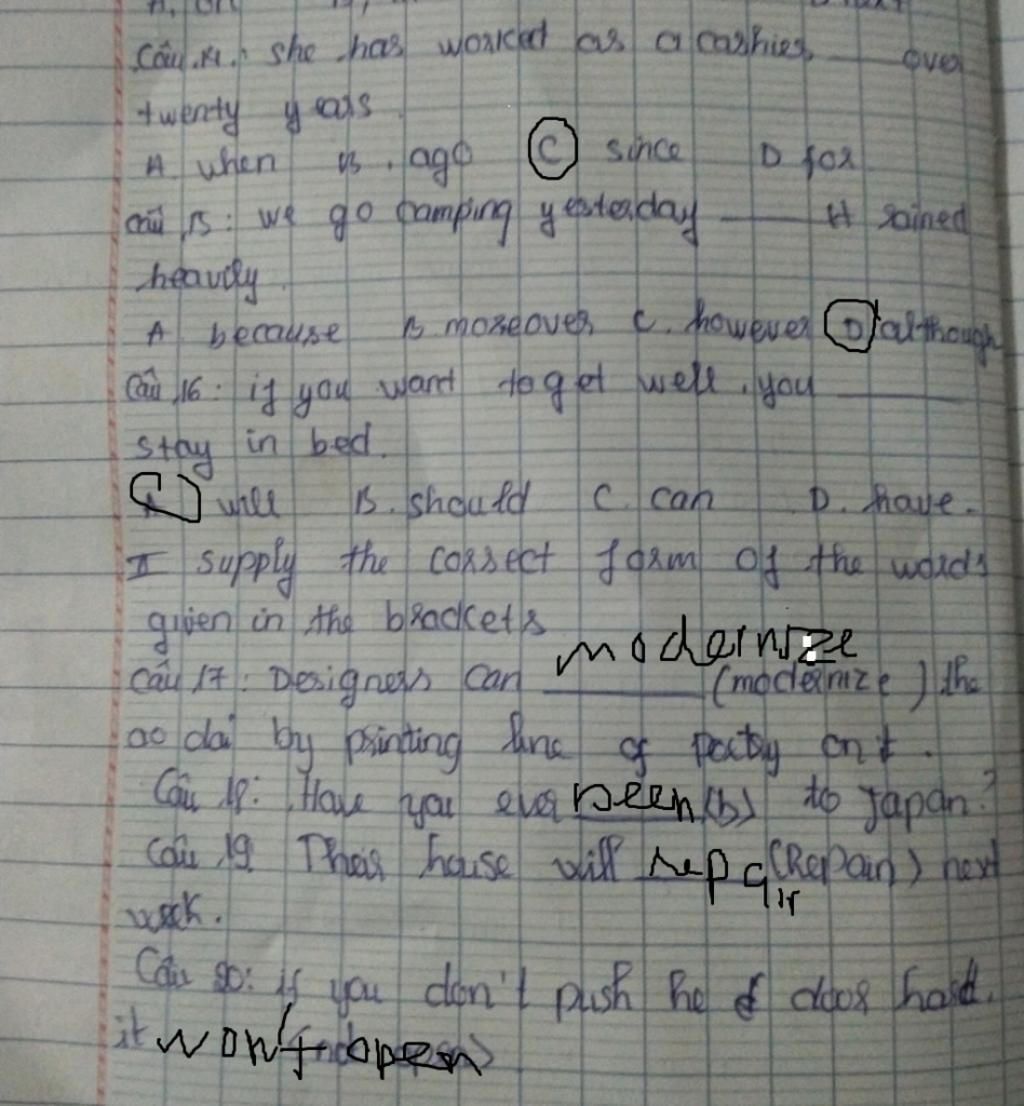 Câu 14: she has worked as a cashier ___ over
twenty years
A when B. ago C since D for
Câu 15: we go camping yesterday ___ it rained
heavily
A because B moreover C. however D although
Câu 16: if you want to get well, you ___
stay in bed.
will B. should C. can D. have.
II supply the correct form of the words
given in the brackets
modernize
Câu 17: Designers can ___ (modernize) the
ao dai by printing line of poetry on it.
Câu 18: Have you ever been (b) to Japan?
Câu 19 Their house will repair (Repair) next
week.
Câu 20: if you don't push he door hard.
it won't open